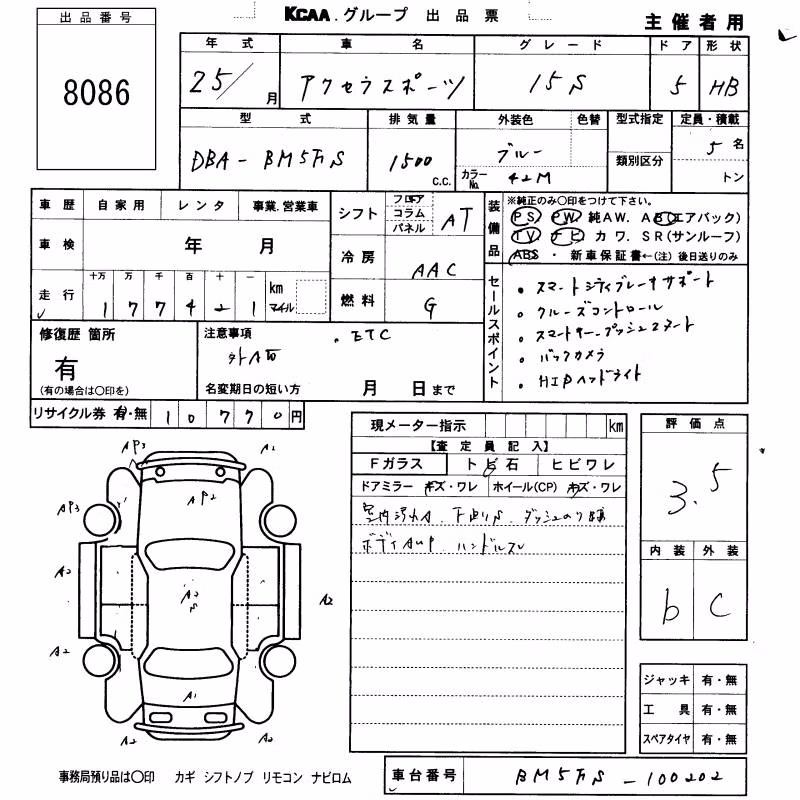 出品番号
8086
KCAA.グループ 出品票
主催者用
年式 車名 グレード ドア 形状
25/月 アクセラスポーツ 15S 5 HB
型式 排気量 外装色 色替 型式指定 定員・積載
DBA-BM5FS 1500 c.c. ブルー 5名
カラーNo. 42M 類別区分 トン
車歴 自家用 レンタ 事業.営業車
シフト フロア コラム パネル AT
車検 年 月
冷房 AAC
走行 十万 万 千 百 十 一 km マイル
1 7 7 4 2 1
燃料 G
装備品
※純正のみ○印をつけて下さい。
PS PW 純AW. AB(エアバック)
TV ナビ カワ. SR(サンルーフ)
ABS ・ 新車保証書←(注)後日送りのみ
セールスポイント
・スマートシティブレーキサポート
・クルーズコントロール
・スマートキー.プッシュスタート
・バックカメラ
・HIDヘッドライト
修復歴 箇所
有
(有の場合は○印を)
注意事項 .ETC
名変期日の短い方 月 日まで
リサイクル券 有・無 10770円
現メーター指示 km
【査定員記入】
Fガラス トビ石 ヒビワレ
ドアミラー キズ・ワレ ホイール(CP) キズ・ワレ
ボディAUP ハンドルスレ
評価点
3.5
内装 外装
b C
AP3 A1
AP2
AP3
A2 A2 S A2
A2
A1
A2 A2
ジャッキ 有・無
工具 有・無
スペアタイヤ 有・無
事務局預り品は○印 カギ シフトノブ リモコン ナビロム
車台番号 BM5FS-100202